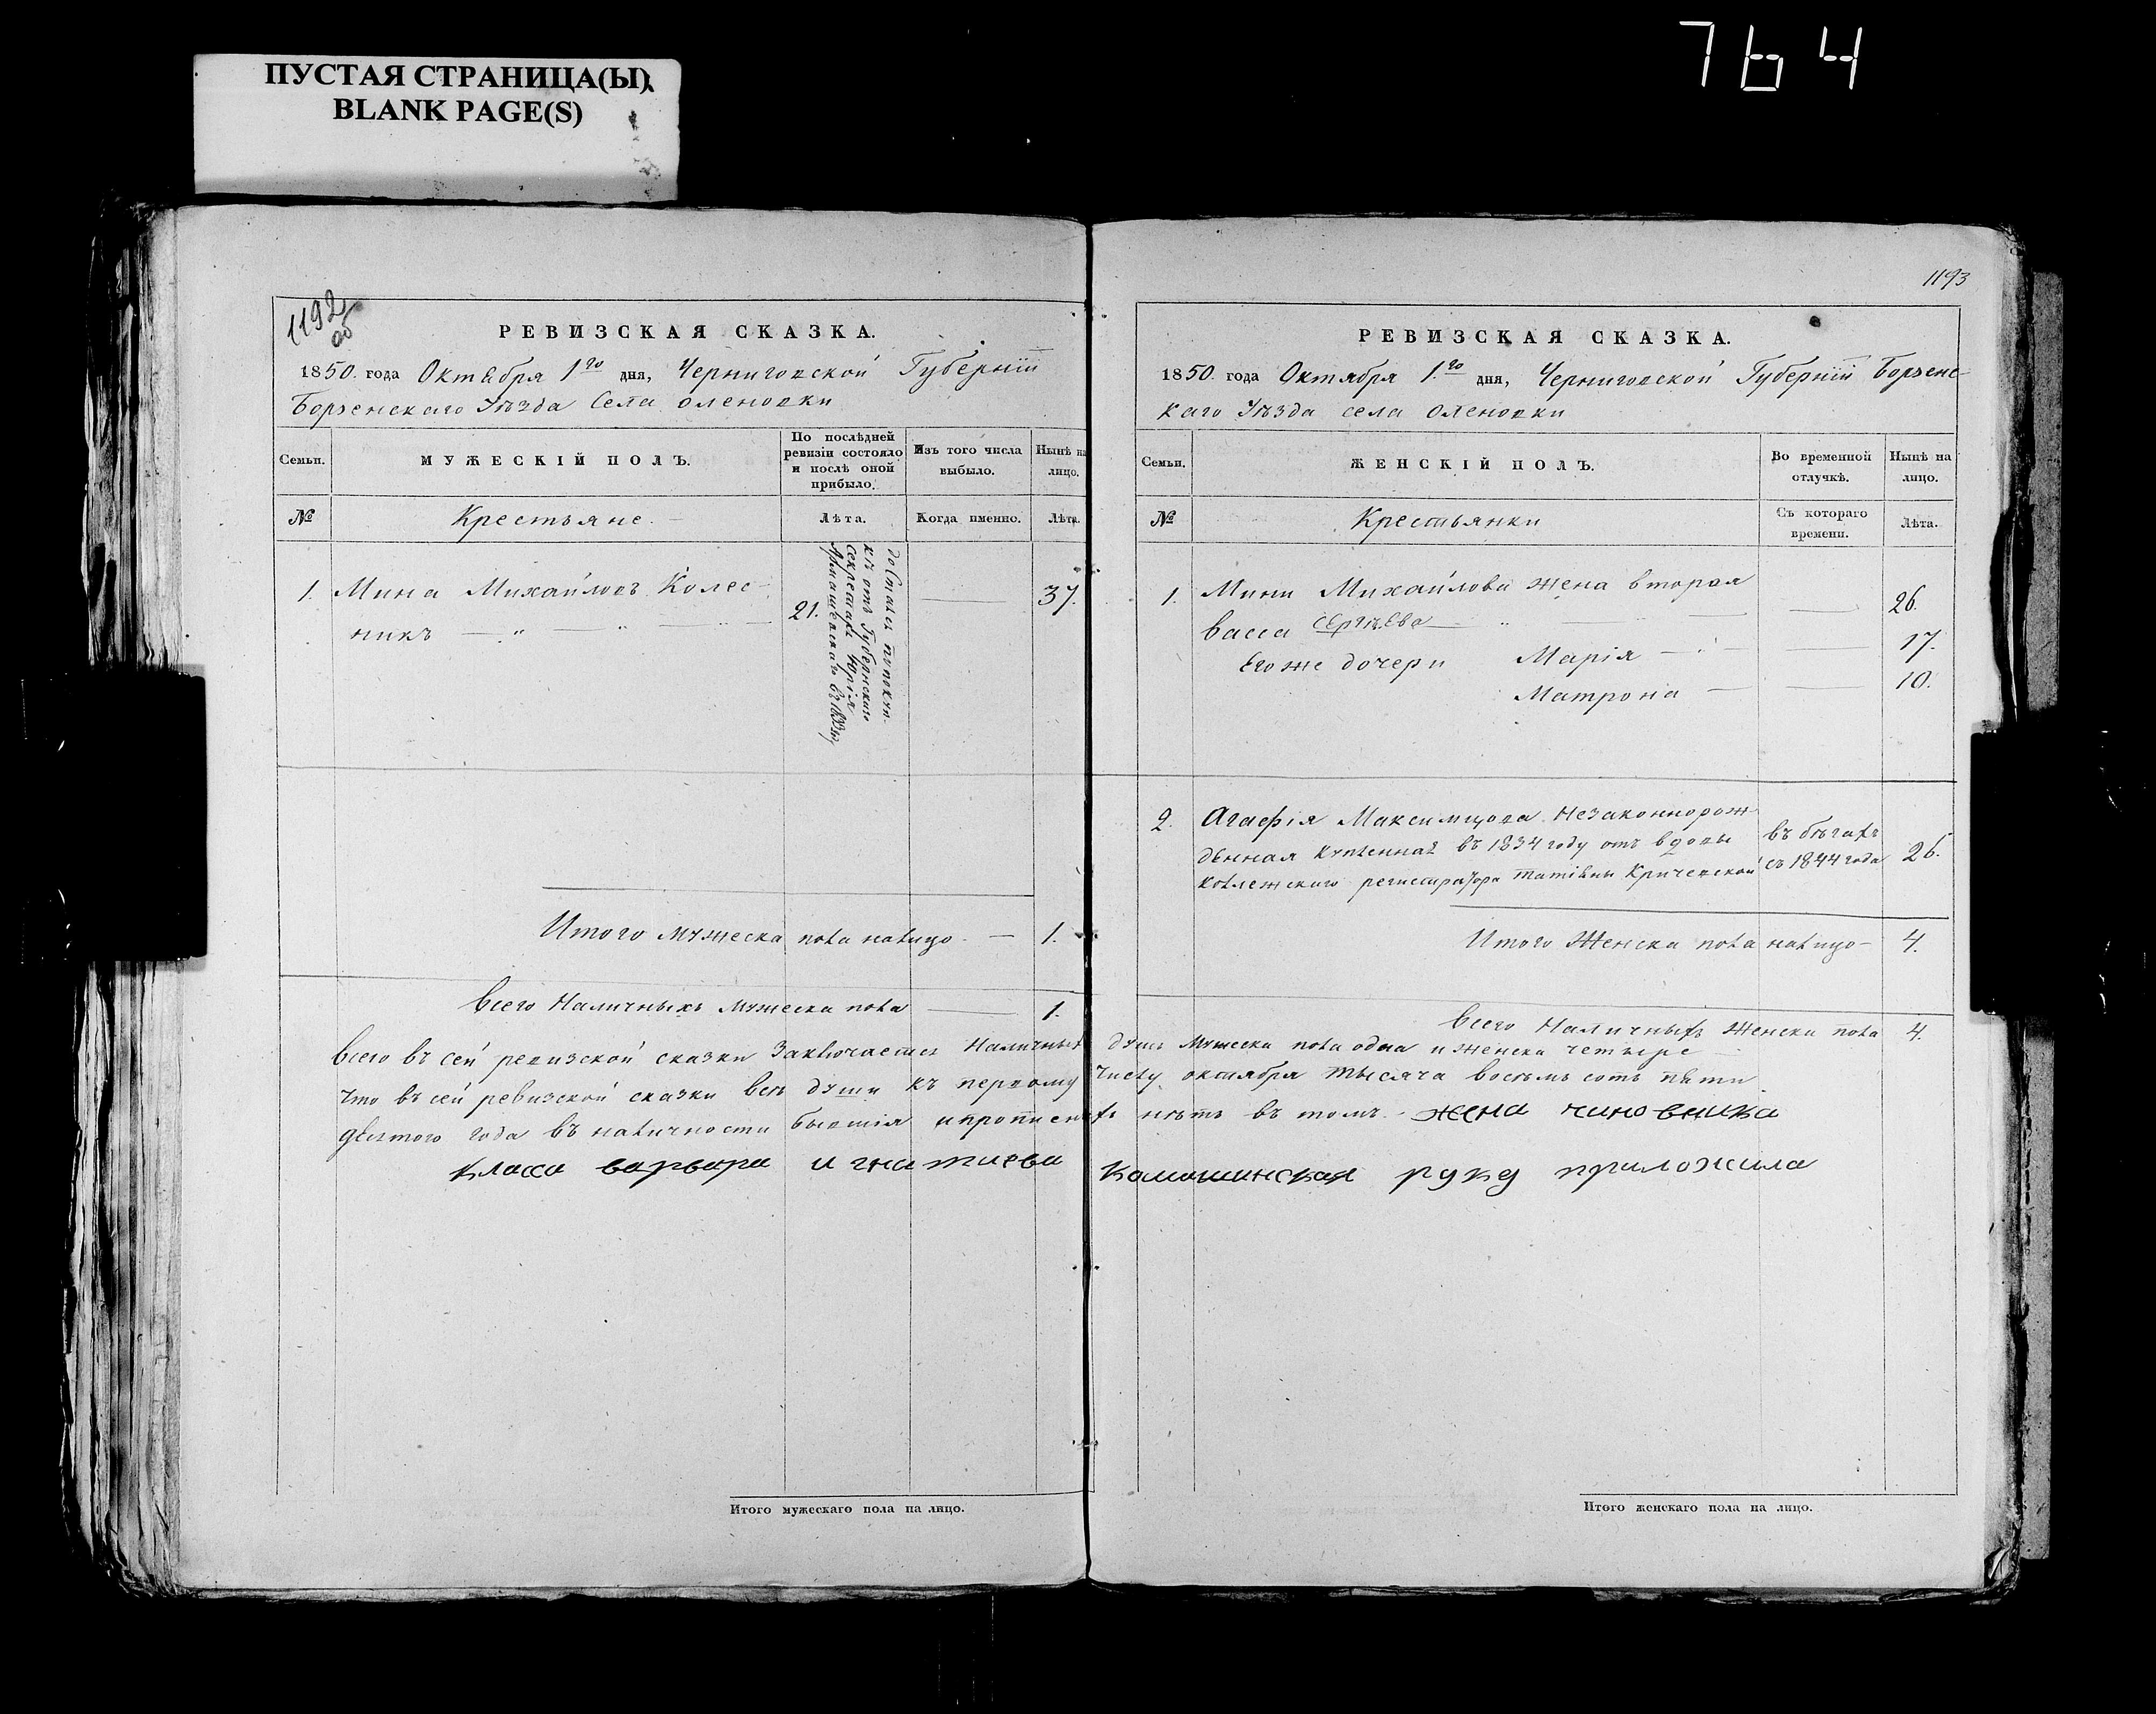 764
ПУСТАЯ СТРАНИЦА(Ы)
BLANK PAGE(S)
1192 об
РЕВИЗСКАЯ СКАЗКА.
1850. года Октября 1го дня, Черниговской Губерніи
Борзенскаго Уѣзда Села Оленовки
Семьи.
МУЖЕСКІЙ ПОЛЪ.
По послѣдней ревизіи состояло и послѣ оной прибыло.
Изъ того числа выбыло.
Нынѣ на лицо.
№
Крестьяне.
Лѣта.
Когда именно.
Лѣта.
1. Мина Михайловъ Колес
никъ
21.
37.
досталсь по покуп
кѣ отъ Губернскаго
Секретаря Юрія
Итого мужеска пола налицо — 1.
Всего Наличныхъ мужеска пола — 1.
1193
РЕВИЗСКАЯ СКАЗКА.
1850. года Октября 1.го дня, Черниговской Губерніи Борзенс-
каго Уѣзда села Оленовки
Семьи.
ЖЕНСКІЙ ПОЛЪ.
Во временной отлучкѣ.
Нынѣ на лицо.
№
Крестьянки
Съ котораго времени.
Лѣта.
1. Мины Михайлова жена вторая
Васса Сергѣева — 26.
Его же дочери Марія — 17.
Матрона — 10.
2. Агафія Максимцова Незаконнорож
денная купленная въ 1834 году отъ вдовы
колежскаго регистратора Татіаны Кричевской
въ бѣгахъ
съ 1844 года
26.
Итого Женска пола налицо — 4.
Всего Наличныхъ Женска пола 4.
Всего въ сей ревизской сказки Заключается Наличныхъ душъ Мужеска пола одна и женска четыре
Что въ сей ревизской сказки всѣ души къ первому числу октября тысяча восемъ сотъ пяти
десятого года въ наличности бывшія и прописныхъ нѣтъ въ томъ жена чиновника
класса варвара игнатиева Камашинская руку приложила
Итого мужескаго пола на лицо.
Итого женскаго пола на лицо.